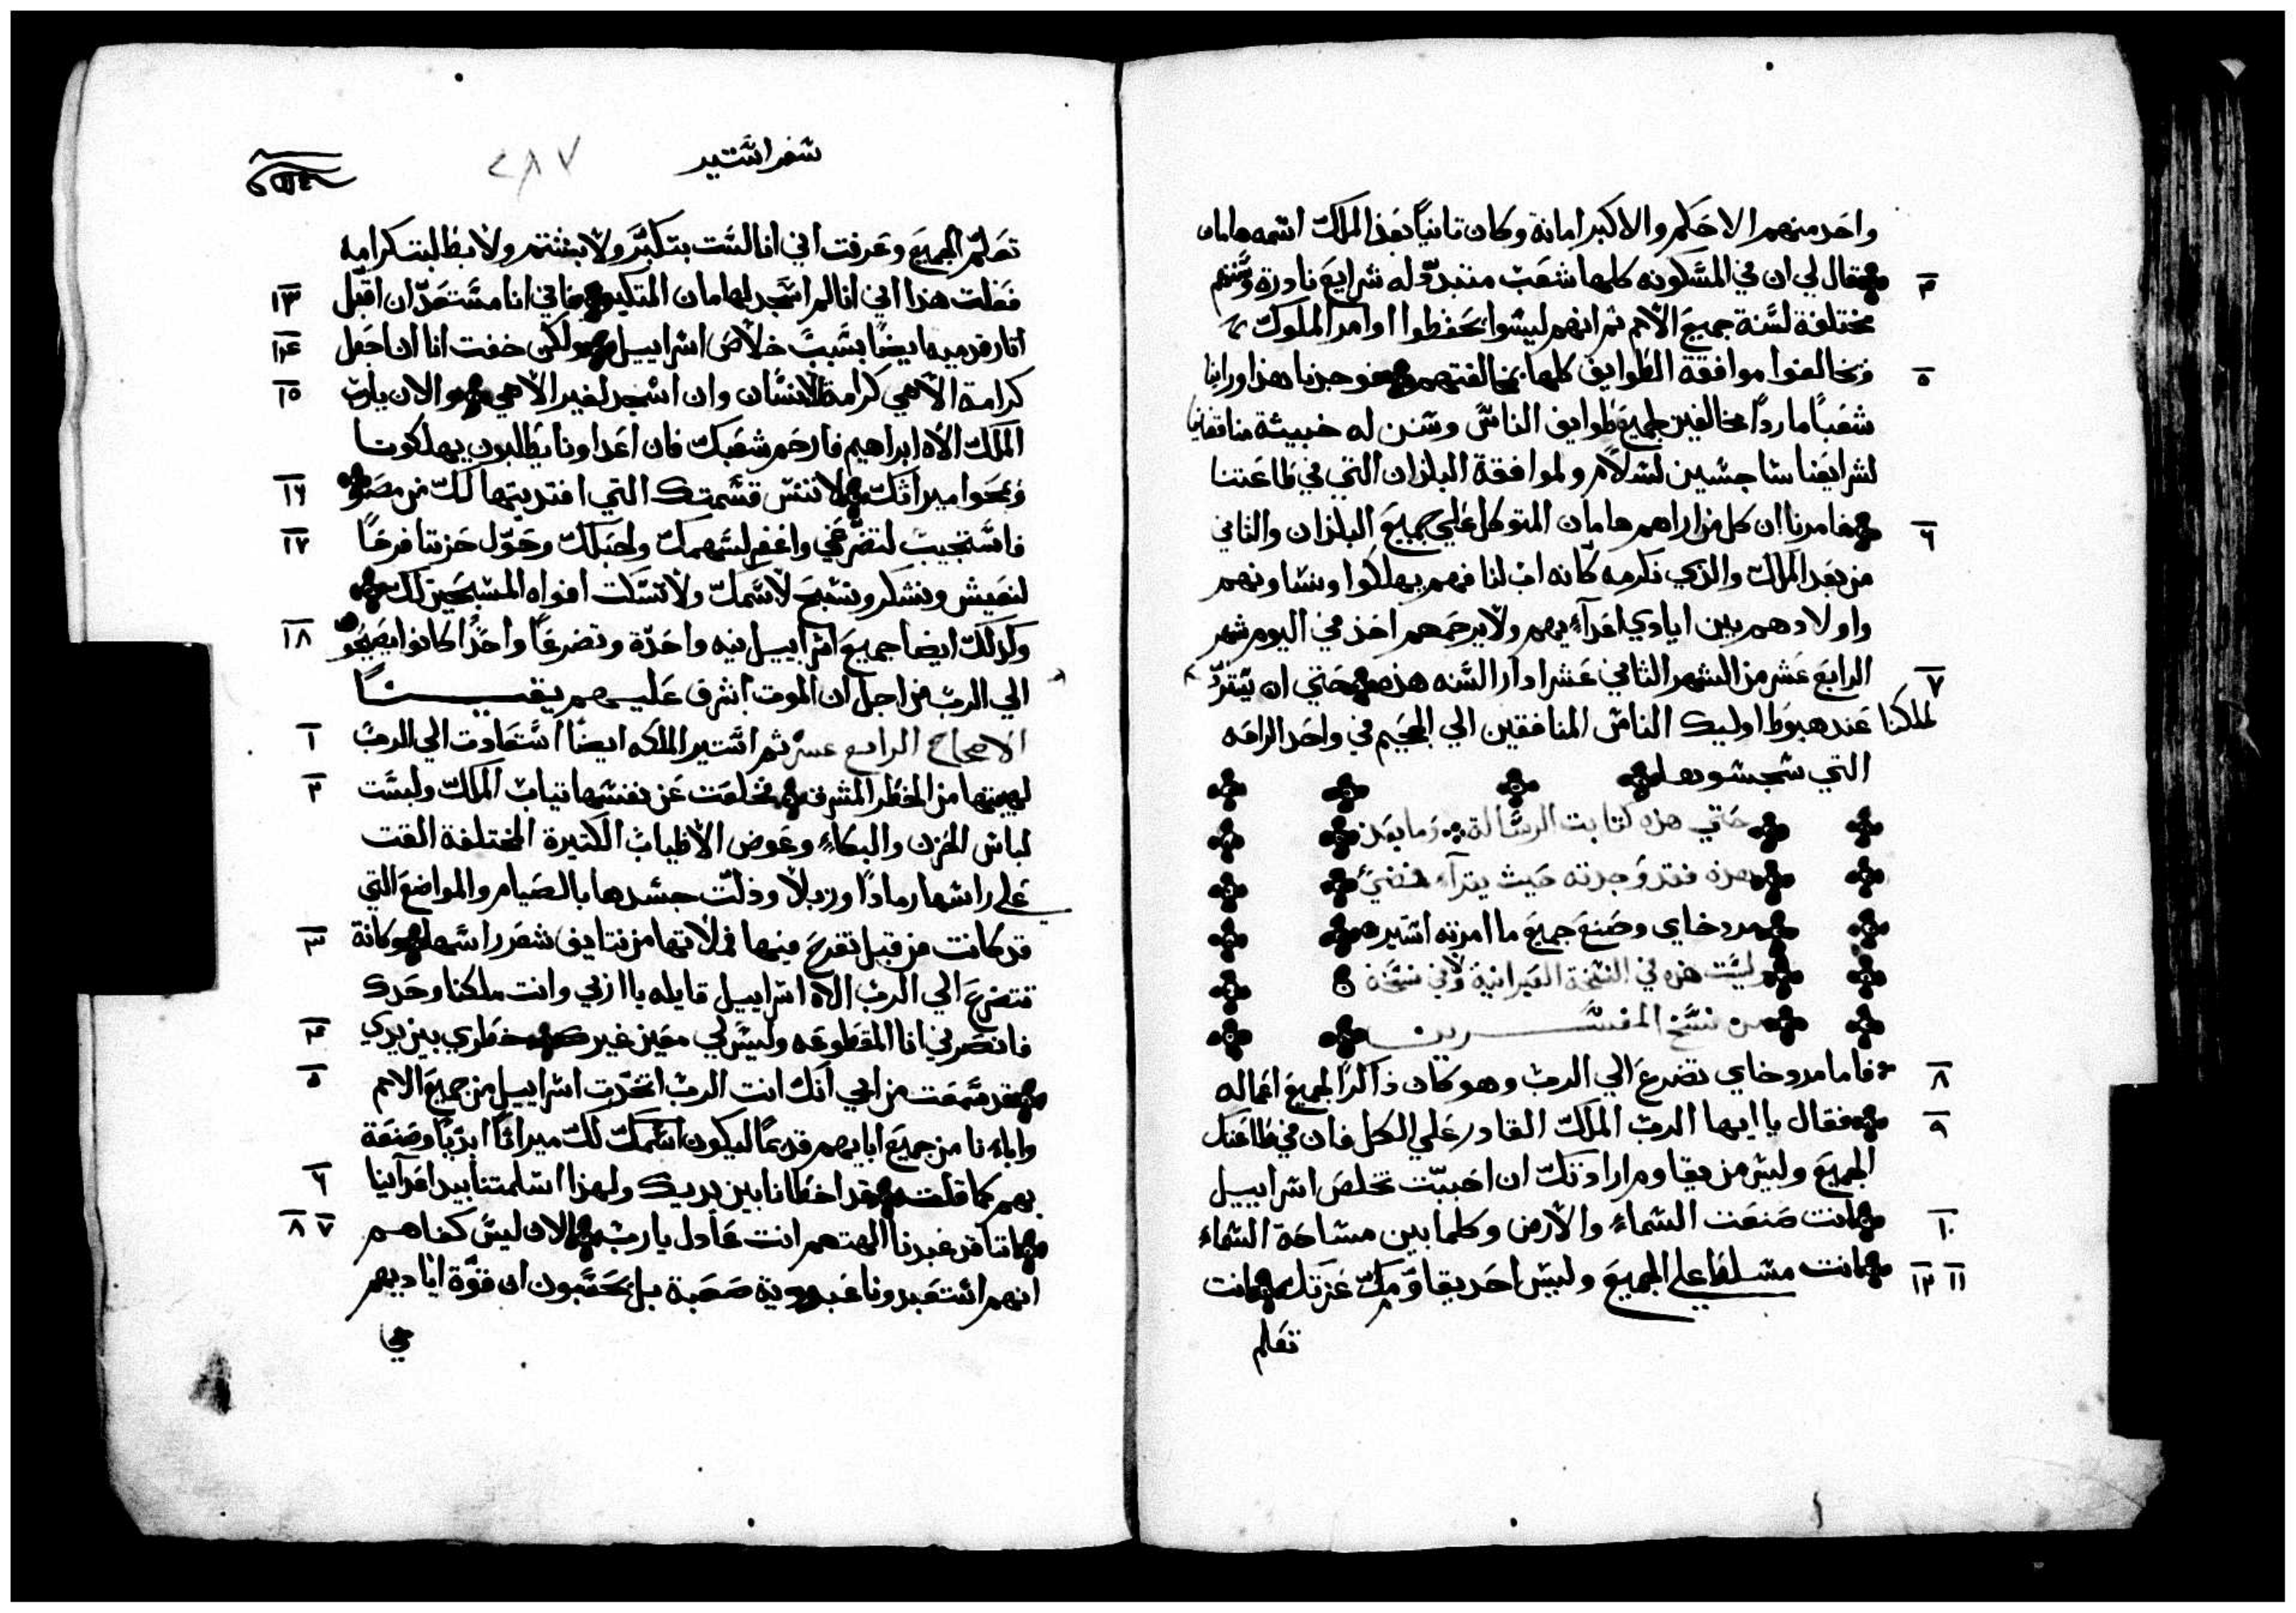 واحد منهم الاحكم والاكبر امانة وكان تانيًا بعد الملك اسمه هامان
٤ فقال لي ان في المسكونه كلها شعب متبدّد له شرايع نادرة وسُننهم
مختلفة لسنة جميع الامم ثم انهم ليسوا يحفظوا اوامر الملوك
٥ ويخالفوا موافقة الطوايف كلها بمخالفتهم فوجدنا هذا وراينا
شعبًا ماردًا مخالفين لجميع طوايف الناس وسنن له خبيثة مناقضا
لشرايعنا سا جسين لسلام ولموافقة البلدان التي في طاعتنا
٦ فامرنا ان كل من اراهم هامان المتوكل علي جميع البلدان والتاني
من بعد الملك والذي نكرمه كانه اب لنا فهم يهلكوا ونساونهم
واولادهم بين ايادي اعدآءيهم ولا يرحمهم احد في اليوم شهر
الرابع عشر من الشهر الثاني عشر ادار السنه هذه ٧ حتي ان يتردّ
لملكنا عند هبوط اوليك الناس المنافقين الي الجحيم في واحد الرافه
التي سجسوها
حتي هذه كتابت الرسالة وما بعد
هذه فقد وجدته حيث يقرآء فمضيَ
مردخاي وصنع جميع ما امرته استير
وليست هذه في النسخة العبرانية ولا في نسخة
من نسخ المفسرين
٨ فاما مردوخاي تضرع الي الرب وهو كان ذاكرًا لجميع اعماله
٩ فقال يا ايها الرب الملك القادر علي الكل فان في طاعتك
الجميع وليس من يقاوم ارادتك ان احببت تخلص اسراييل
١٠ انت صنعت السماء والارض وكلما بين مساحة السماء
١١ ١٢ انت مسلط علي الجميع وليس احد يقاوم عزتك انت
تعلم
سفر استير
٢٨٧
تعلم الجميع وعرفت اني انا لست بتكبّر ولا بشتم ولا بطالبت كرامه
فعلت هذا اني انا لم اسجد لهامان المتكبر ١٣ فاني انا مستعدّ ان اقبل
اتار قدميه ايضًا بسبب خلاص اسراييل ١٤ ولكن خفت انا ان اجعل
كرامة الاهي كرامة لانسان وان اسجد لغير الاهي ١٥ والان يارب
الملك الاه ابراهيم فارحم شعبك فان اعداونا يطالبون يهلكونا
ويمحوا ميراثك ١٦ لا تنس قسمتك التي افتديتها لك من مصر
١٧ فاستجيب لتضرعي واغفر لسهمك ولحبلك وحوّل حزننا فرحًا
لنعيش ونشكر ونسبح لاسمك ولا تسكت افواه المسبحين لك
١٨ وكذلك ايضا جميع اسراييل نيه واحدة وتضرعًا واحدًا كانوا يصيحو
الي الرب من اجل ان الموت اشرف عليهم يقينًا
١ الاصحاح الرابع عشر ثم استير الملكه ايضًا استعادت الي الرب
لهيبتها من الخطر المشرف ٢ فخلعت عن نفسها تياب الملك ولبست
لباس الحزن والبكاء وعوض الاطياب الكتيرة المختلفة القت
علي راسها رمادًا وزبلًا وذلّت جسدها بالصيام والمواضع التي
قد كانت من قبل تفرح فيها ملاتها من نتايف شعر راسها ٣ وكانة
تتضرع الي الرب الاه اسراييل قايله يا ازلي وانت ملكنا وحدك
فانصرني انا المقطوعه وليس لي معين غيرك ٤ خطري بين يدي
٥ قد سمعت من ابي انك انت الرب اتخذت اسراييل من جميع الامم
واباءنا من جميع ابايهم قديمًا ليكون اسمك لك ميراثًا ابديًا وصنعة
بهم كما قلت ٦ قد اخطانا بين يديك ولهذا اسلمتنا بيد اعدآينا
٧ ٨ اننا قد عبدنا الهتهم انت عادل يارب الان ليس كفاهم
انهم استعبدونا عبودية صعبة بل يحتسبون ان قوّة اياديهم
في